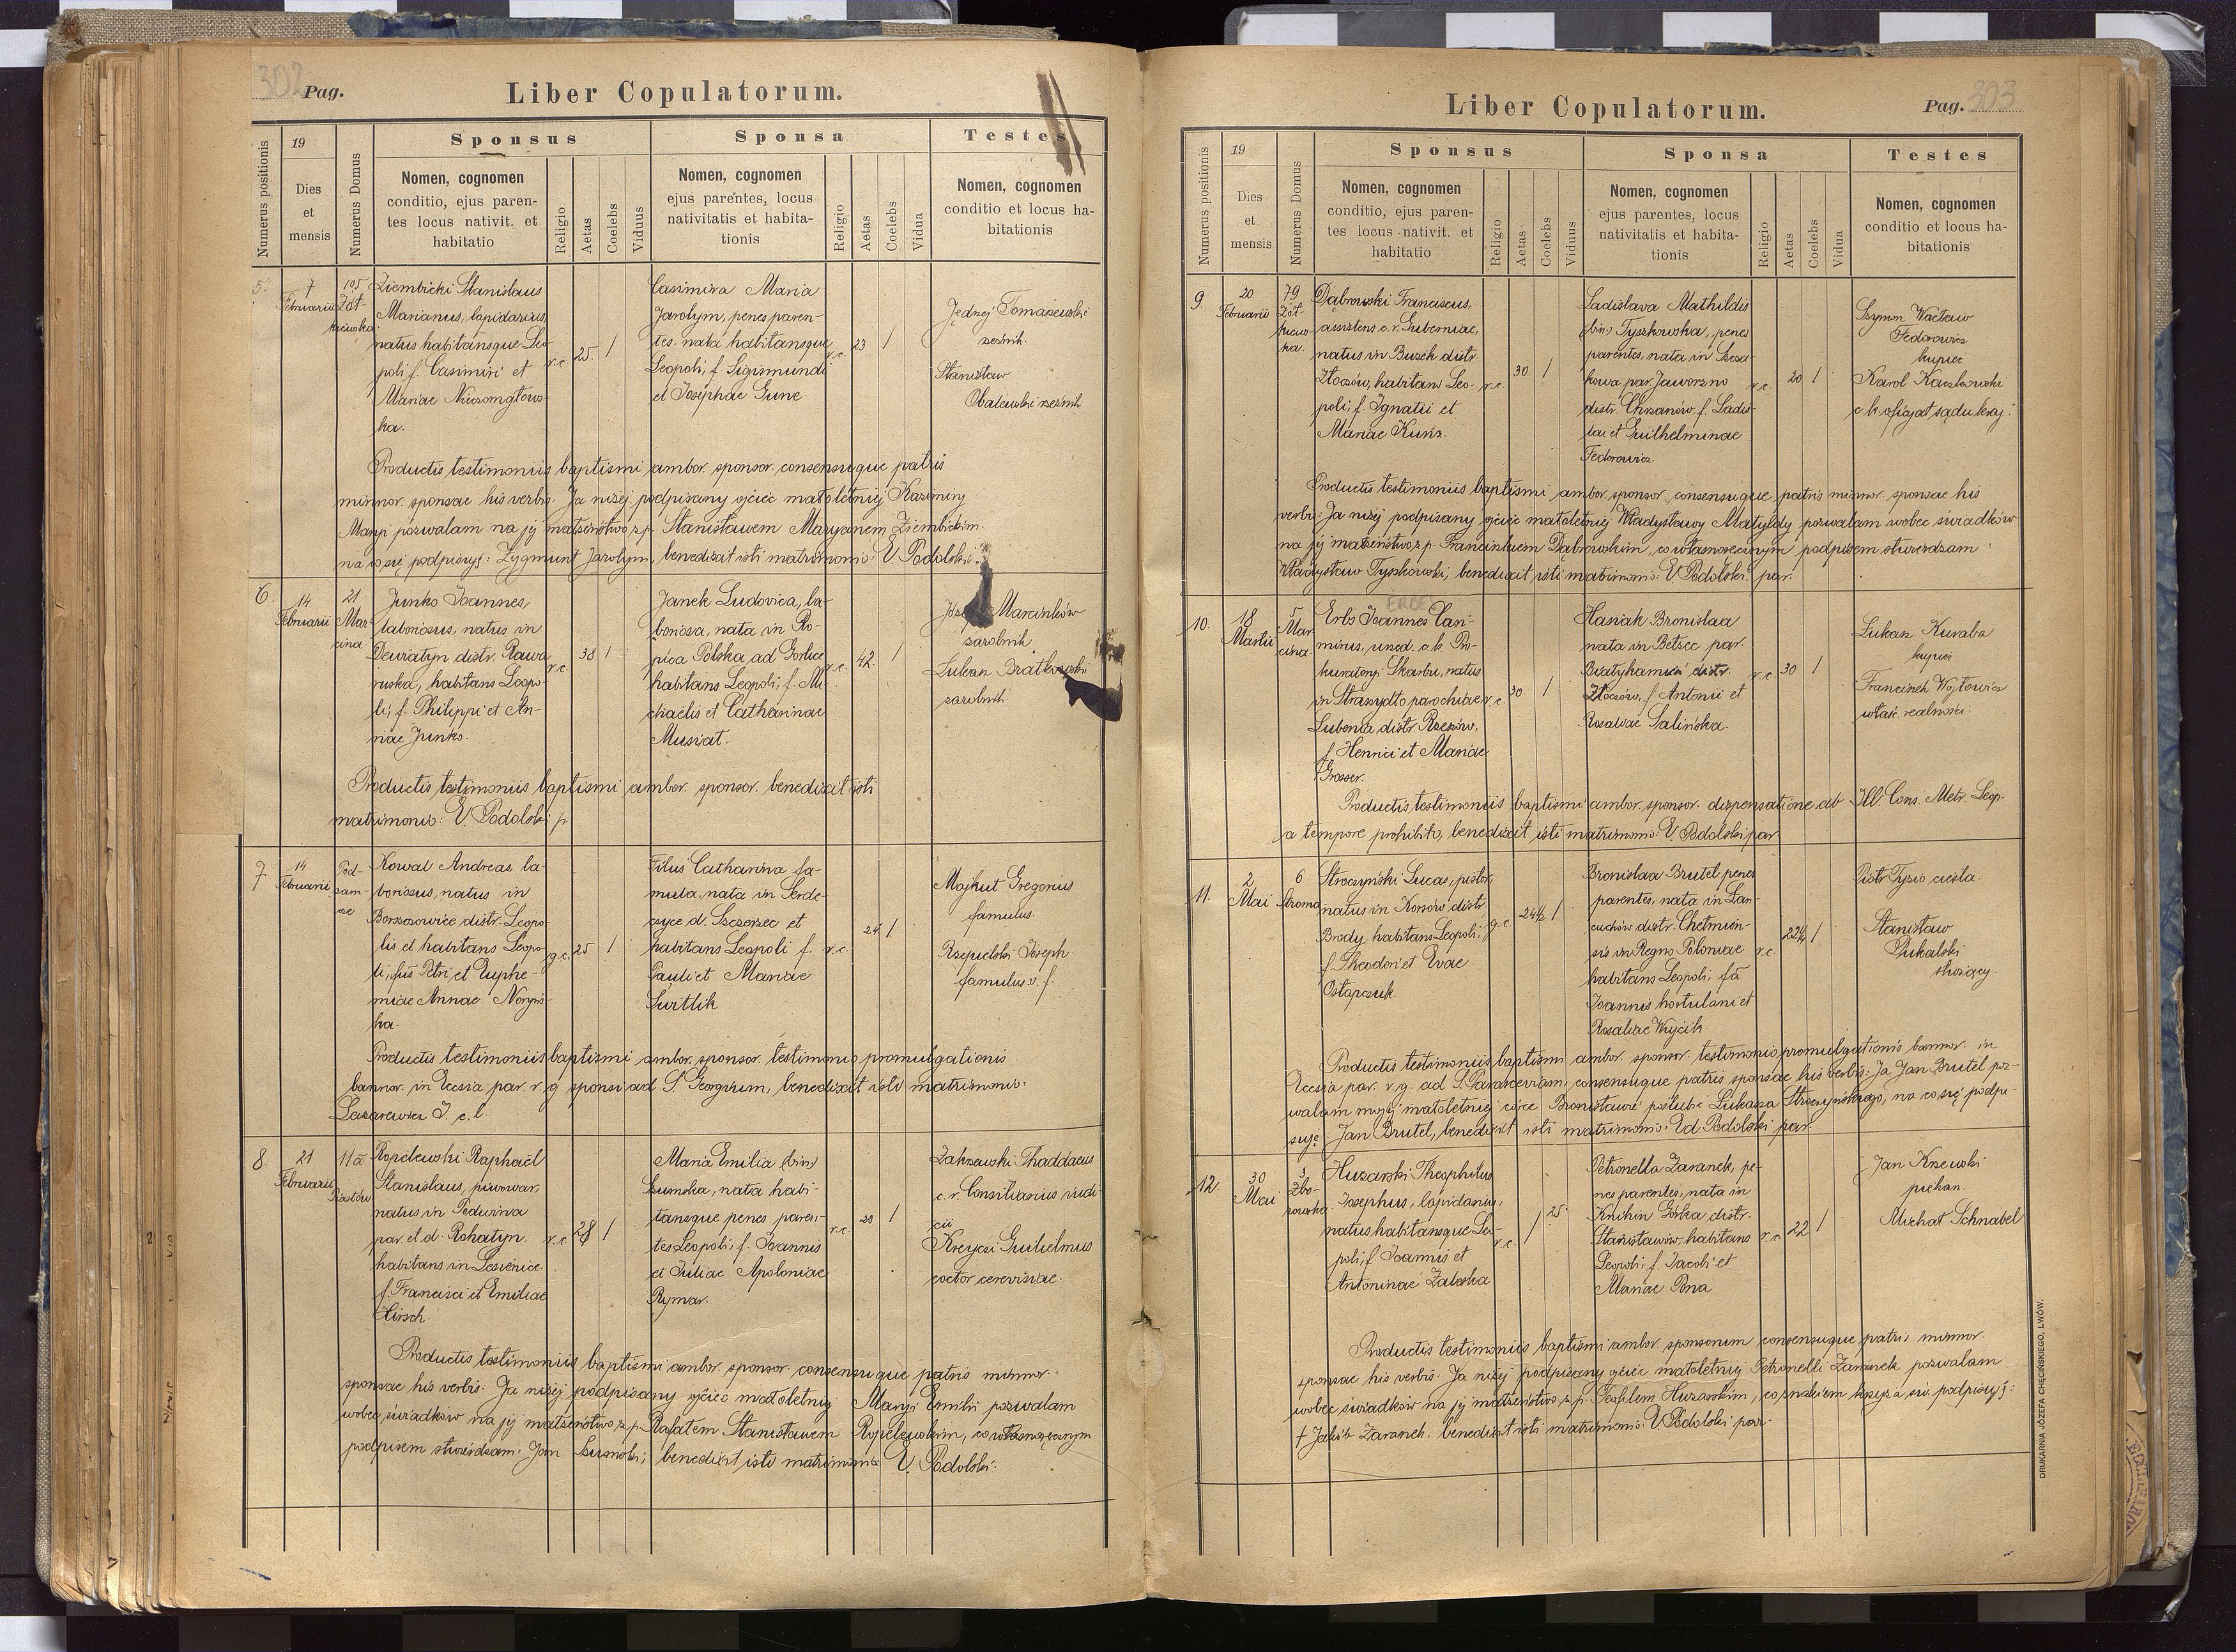 302 Pag.
Liber Copulatorum.
Numerus positionis
19
Dies
et
mensis
Numerus Domus
Sponsus
Nomen, cognomen
conditio, ejus paren-
tes locus nativit. et
habitatio
Religio
Aetas
Coelebs
Viduus
Sponsa
Nomen, cognomen
ejus parentes, locus
nativitatis et habita-
tionis
Religio
Aetas
Coelebs
Vidua
Testes
Nomen, cognomen
conditio et locus ha-
bitationis
5.
7
Februarii
105
Żół-
kiewska
Ziembicki Stanislaus
Marianus, lapidarius,
natus habitansque Leo-
poli f. Casimiri et
Mariae
ka.
r.c. 25 1
Casimira Maria
Jarolym, penes paren-
tes. nata habitansque
Leopoli, f. Sigismundi
et Josephae Gune
r.c. 23 1
Jędrzej Tomaszewski
rzeźnik.
Stanisław
Obalewski rzeźnik
Productis testimoniis baptismi ambor. sponsor. consensuque patris
minnor. sponsae his verbis: Ja niżej podpisany ojciec małoletniej Kazimiry
Maryi pozwalam na jej małżeństwo z p. Stanisławem Maryanem Ziembickim.
na co się podpisuję: Zygmunt Jarolym, benedixit isti matrimonio: E. Podolski.
6.
14
Februarii
21
Mar-
cina
Junko Joannes,
laboriosus, natus in
Dewiatyn distr. Rawa
ruska, habitans Leopo-
li, f. Philippi et An-
nae Junko.
r.c. 38 1
Janek Ludovica, la-
boriosa, nata in Ro-
pica Polska ad Gorlice
habitans Leopoli, f. Mi-
chaelis et Catharinae
Musiat.
r.c. 42 1
Józef Marcinków
zarobnik.
Lukasz Bratkowski
zarobnik.
Productis testimoniis baptismi ambor. sponsor. benedixit isti
matrimonio: E. Podolski p.
7
14
Februarii
Pod-
zam-
cze
Kowal Andreas la-
boriosus, natus in
Borszczowice distr. Leopo-
lis et habitans Leopo-
li, fus Petri et Euphe-
miae Annae
ka.
g.c. 25 1
Filus Catharina fa-
mula, nata in Serde-
cyce d. Szczerzec et
habitans Leopoli f.
Pauli et Mariae
Switlik
r.c. 24 1
Majkut Gregorius
famulus.
Rzepielski Joseph
famulus. v. f.
Productis testimoniis baptismi ambor. sponsor. testimonio promulgationis
bannor. in Eccsia par. r. g. sponsi ad S Georgium, benedixit isti matrimonio.
Lazarewicz J. c. l.
8.
21
Februarii
11a
Piastów
Ropelewski Raphaël
Stanislaus, piwowar,
natus in Podwina
par. et d. Rohatyn.
habitans in Lesienice
f. Francisci et Emiliae
Hirsch.
r.c. 28 1
Maria Emilia (bin)
Szumska, nata habi-
tansque penes paren-
tes Leopoli, f. Joannis
et Juliae Apoloniae
Rymar.
r.c. 20 1
Zakrzewski Thaddaeus
c. r. Consiliarius Iudi-
cii
Kreyczi Guilielmus
coctor cerevisiae.
Productis testimoniis baptismi ambor. sponsor. consensuque patris minnor.
sponsae his verbis: Ja niżej podpisany ojciec małoletniej Maryi Emilii pozwalam
wobec świadków na jej małżeństwo z p. Rafałem Stanisławem Ropelewskim, co własnoręcznym
podpisem stwierdzam: Jan Szumski; benedixit isti matrimonio E. Podolski.
Liber Copulatorum.
Pag. 303
Numerus positionis
19
Dies
et
mensis
Numerus Domus
Sponsus
Nomen, cognomen
conditio, ejus paren-
tes locus nativit. et
habitatio
Religio
Aetas
Coelebs
Viduus
Sponsa
Nomen, cognomen
ejus parentes, locus
nativitatis et habita-
tionis
Religio
Aetas
Coelebs
Vidua
Testes
Nomen, cognomen
conditio et locus ha-
bitationis
9.
20
Februarii
79
Żół-
kiew-
ska.
Dąbrowski Franciscus,
assistens c. r. Guberniae,
natus in Busk distr.
Złoczów, habitans Leo-
poli, f. Ignatii et
Mariae Kunz.
r.c. 30 1
Ladislava Mathildis
(bin) Tyszkowska, penes
parentes, nata in Szcza-
kowa par. Jaworzno
distr. Chrzanów f. Ladis-
lai et Guilhelminae
Fedorowicz.
r.c. 20 1
Szymon Wacław
Fedorowicz
kupiec
Karol Kaczkowski
c. k. oficyał sądu kraj.
Productis testimoniis baptismi ambor. sponsor. consensuque patris minnor. sponsae his
verbis: Ja niżej podpisany ojciec małoletniej Władysławy Matyldy pozwalam wobec świadków
na jej małżeństwo z p. Franciszkiem Dąbrowskim, co własnoręcznym podpisem stwierdzam:
Władysław Tyszkowski, benedixit isti matrimonio: E. Podolski par.
10.
18
Martii
5
Mar-
cina.
ERBES
Erbs Joannes Casi-
mirus, urzęd. c. k. Pro-
kuratoryi Skarbu, natus
in Straszydło parochiae
Lubenia distr. Rzeszów,
f. Henrici et Mariae
Grosser.
r.c. 30. 1
Hasiak Bronislaa
nata in Bełzec par.
Białykamień distr.
Złoczów, f. Antonii et
Rosaliae Salińska.
r.c. 30 1
Łukasz Kuraba
kupiec
Franciszek Wojtowicz
właśc. realności.
Productis testimoniis baptismi ambor. sponsor. dispensatione ab Ill. Cons. Metr. Leop.
a tempore prohibito, benedixit isti matrimonio: E. Podolski par.
11.
2
Mai
6
Stroma
Stroczyński Lucas, pistor,
natus in Korsów distr.
Brody habitans Leopoli,
f. Theodori et Evae
Ostapczuk.
g.c. 24½ 1
Bronislaa Brutel penes
parentes, nata in Lan-
cuchów distr. Chełmien-
sis in Regno Poloniae
habitans Leopoli, fa
Joannis hortulani et
Rosaliae Wyjcik.
r.c. 22¼ 1
Piotr Tyzio cieśla.
Stanisław
Pukalski
służący.
Productis testimoniis baptismi ambor. sponsor. testimonio promulgationis bannor. in
Eccsia par. r. g. ad S. Parasceviam, consensuque patris sponsae his verbis: Ja Jan Brutel poz-
walam mojej małoletniej córce Bronisławie poślubić Łukasza Stroczyńskiego, na co się podpi-
suję: Jan Brutel, benedixit isti matrimonio: Ed. Podolski par.
12.
30
Mai
3
Zbo-
rowska
Huzarski Theophilus
Josephus, lapidarius,
natus habitansque Leo-
poli, f. Joannis et
Antoninae Zaleska
r.c. 1 25
Petronella Zaranek, pe-
nes parentes, nata in
Knihin Górka distr.
Stanisławów, habitans
Leopoli, f. Jacobi et
Mariae Pona
r.c. 22 1
Jan Krzewski
piekarz.
Michał Schnabel
Productis testimoniis baptismi ambor. sponsorum consensuque patris minnor.
sponsae his verbis: Ja niżej podpisany ojciec małoletniej Petronelli Zaranek pozwalam
wobec świadków na jej małżeństwo z p. Teofilem Huzarskim, co znakiem krzyża św. podpisuję:
+ Jakób Zaranek. benedixit isti matrimonio: E. Podolski par.
DRUKARNIA JÓZEFA CHĘCIŃSKIEGO, LWÓW.